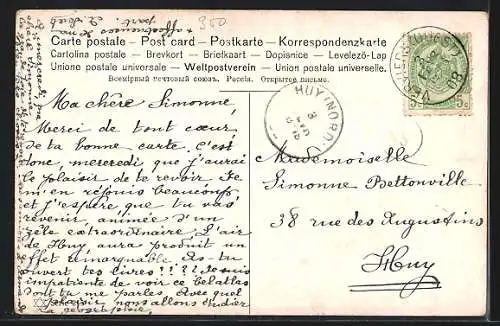 300
Carte postale – Post card – Postkarte – Korrespondenzkarte
Cartolina postale – Brevkort – Briefkaart – Dopisnice – Levelező-Lap
Unione postale universale – Weltpostverein – Union postale universelle.
Всемірный почтовый союзъ. Россія. Открытое письмо.
VERVIERS (OUEST)
08
5c 5c
HUY (NORD)
Ma chère Simonne,
Merci de tout cœur
de ta bonne carte. C'est
donc, mercredi que j'aurai
le plaisir de te revoir. Je
m'en réjouis beaucoup
et j'espère que tu vas
revenir, animée d'un
zèle extraordinaire. L'air
de Huy, aura produit un
effet remarquable. As-tu
ouvert tes livres ? ! ? Je suis
impatiente de voir ce bel atlas
dont tu me parles. Avec quel
plaisir, nous allons étudier
la géographie,
Mademoiselle
Simonne Bettonville
38 rue des Augustins
Huy